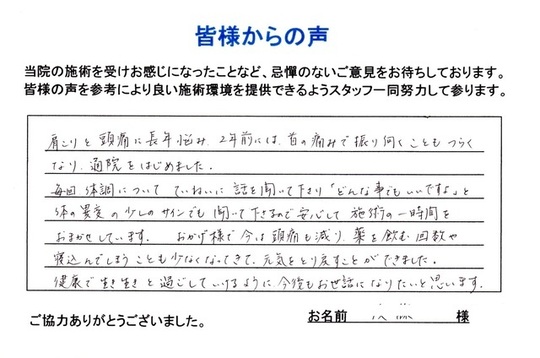 皆様からの声
当院の施術を受けお感じになったことなど、忌憚のないご意見をお待ちしております。
皆様の声を参考により良い施術環境を提供できるようスタッフ一同努力して参ります。
肩こりと頭痛に長年悩み、2年前には、首の痛みで振り向くこともつらく
なり、通院をはじめました。
毎回体調について ていねいに話を聞いて下さり「どんな事でもいいですよ」と
体の異変の少しのサインでも聞いて下さるので安心して施術の一時間を
おまかせしています。 おかげ様で今は頭痛も減り、薬を飲む回数や
寝込んでしまうことも少なくなってきて、元気をとり戻すことができました。
健康で生き生きと過ごしていけるように、今後もお世話になりたいと思います。
ご協力ありがとうございました。
お名前 様